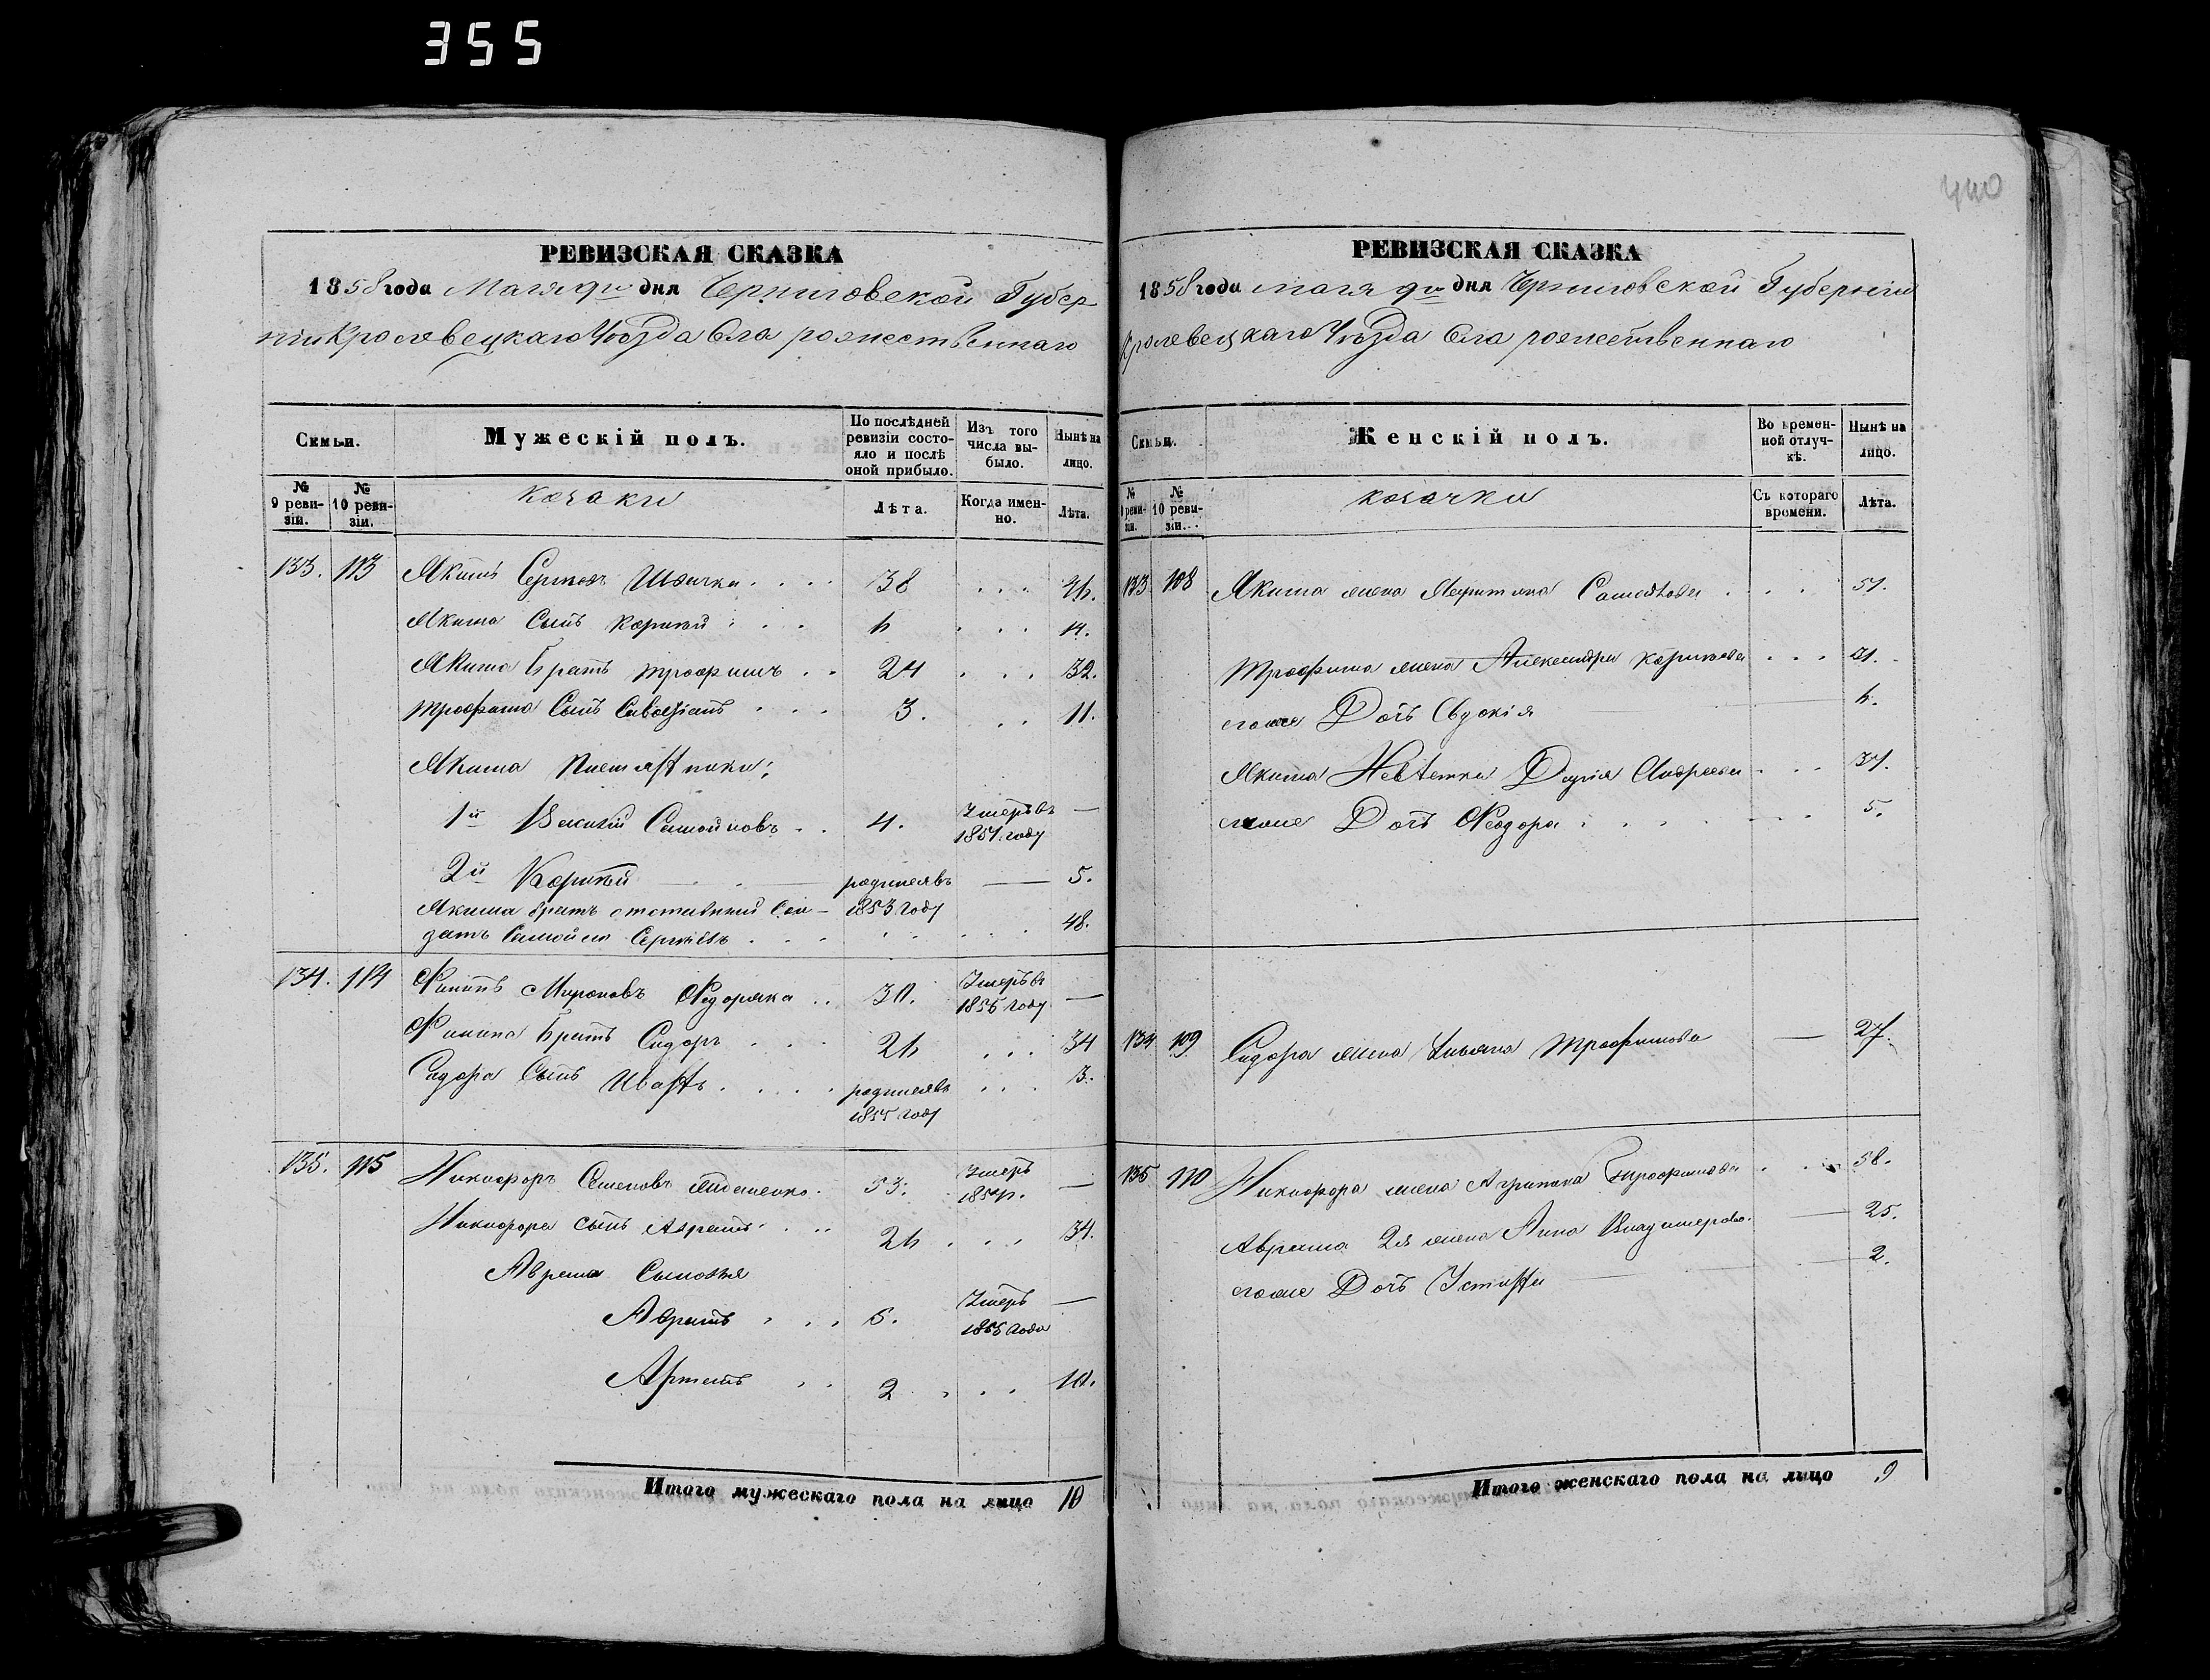 355
440
РЕВИЗСКАЯ СКАЗКА
1858 года Мая 9го дня Черниговской Губер
ніи Кролевецкаго Уѣзда Села рожественнаго
Семьи.
Мужескій полъ.
По послѣдней ревизіи состояло и послѣ оной прибыло.
Изъ того числа выбыло.
Нынѣ на лицо.
№ 9 ревизіи.
№ 10 ревизіи.
козаки
Лѣта.
Когда именно.
Лѣта.
133. 113 Якимъ Сергѣевъ 38 46.
Якима Сынъ Корнѣй 6 14.
Якима Братъ трофимъ 24 32.
трофима Сынъ 3. 11.
Якима племянники:
1й Самойловъ 4. Умеръ въ 1851 году —
2й Корнѣй родился въ 1853 году — 5.
Якима братъ отставный Сол-
датъ Самойло Сергѣевъ 48.
134. 114 Филипъ Мироновъ Федоряка 30. Умеръ въ 1856 году —
Филипа Братъ Сидоръ 26 34
Сидора Сынъ Иванъ родился въ 1855 году 3.
135. 115 Никифоръ Семеновъ 53. Умеръ —
Никифора сынъ Аврамъ 26 34.
Аврама Сыновья
Аврамъ 6. Умеръ 1855 года —
Артемъ 2 10.
Итого мужескаго пола на лицо 10
РЕВИЗСКАЯ СКАЗКА
1858 года мая 9го дня Черниговской Губерніи
Кролевецкаго Уѣзда Села рожественнаго
Семьи.
Женскій полъ.
Во временной отлучкѣ.
Нынѣ на лицо.
№ 9 ревизіи.
№ 10 ревизіи.
козачки
Съ котораго времени.
Лѣта.
133 108 Якима жена Самойлова 51.
Трофима жена Александра Корнѣева 31.
егоже Дочь Евдокія 6.
Якима Невѣстка Дарія Андреева 37.
еяже Дочь Феодора 5.
134 109 Сидора жена Ульяна Трофимова — 27.
135 110 Никифора жена Агрипина Трофимова 58.
Аврама 2я жена Анна Владимерова — 25.
егоже Дочь Устинья 2.
Итого женскаго пола на лицо 9